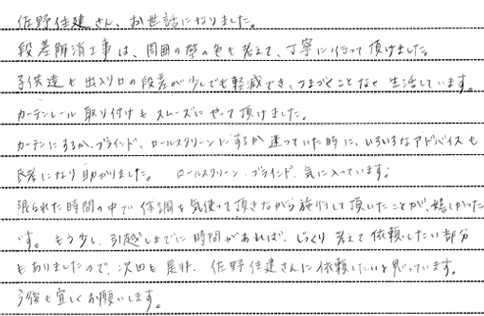 佐野住建さん、お世話になりました。
段差解消工事は、周囲の壁の色も考えて、丁寧に行って頂けました。
子供達も出入り口の段差が少しでも軽減でき、つまづくことなく生活しています。
カーテンレール取り付けもスムーズにやって頂けました。
カーテンにするか、ブラインド、ロールスクリーンにするか迷っていた時に、いろいろなアドバイスも
参考になり助かりました。 ロールスクリーン、ブラインド、気に入っています。
限られた時間の中で体調を気使って頂きながら施行して頂いたことが、嬉しかった
です。もう少し、引越しまでに時間があれば、じっくり考えて依頼したい部分
もありましたので、次回も是非、佐野住建さんに依頼したいと思っています。
今後も宜しくお願いします。